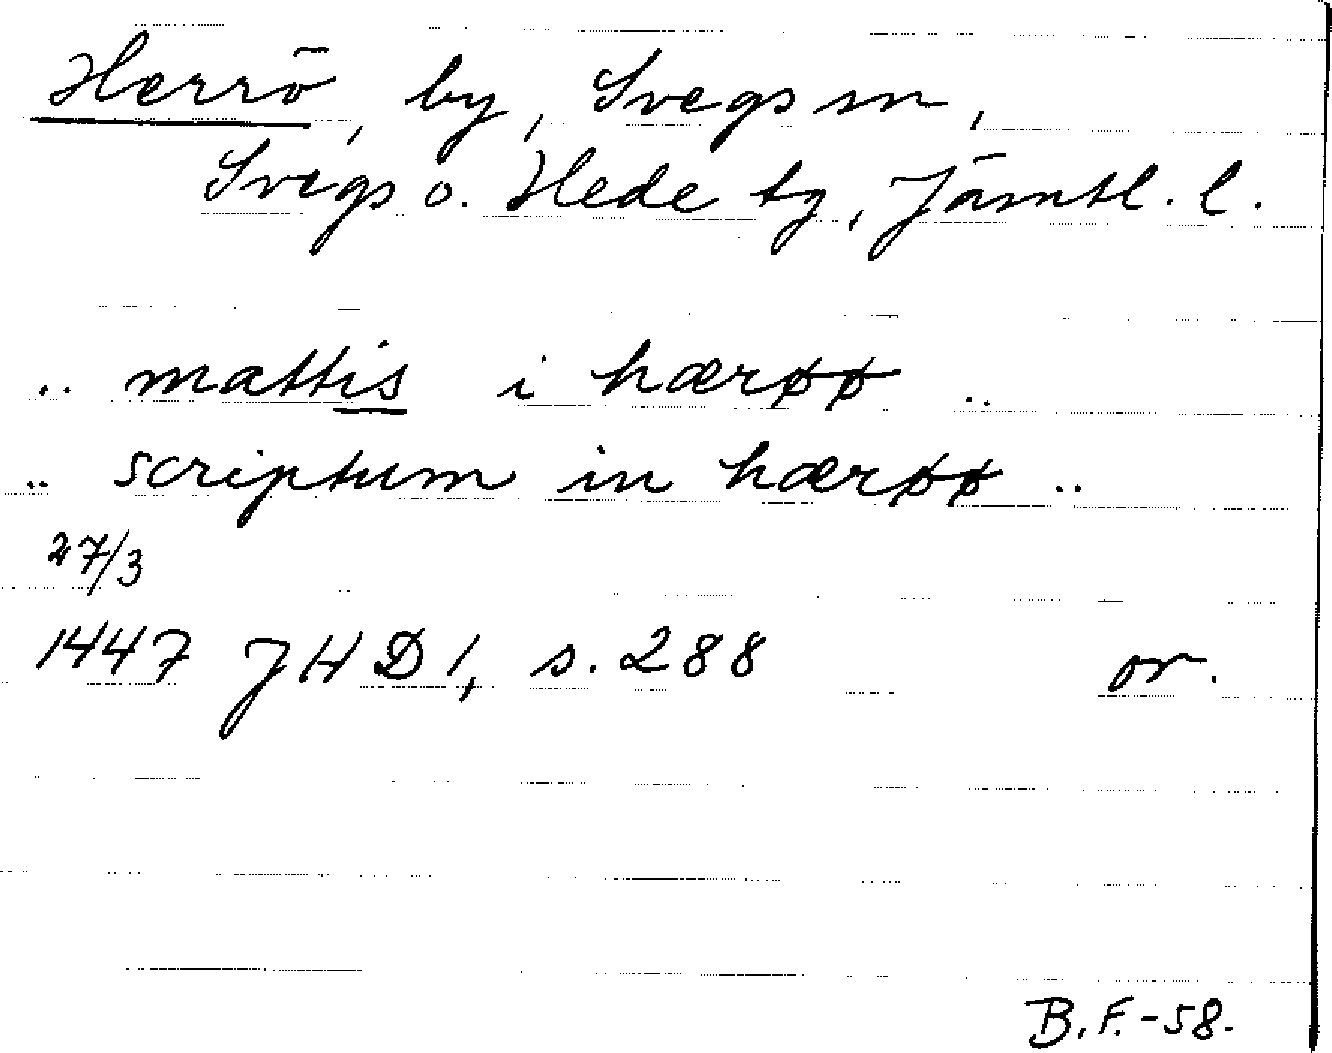 Herrö, by, Svegs sn,
Svegs o. Hede tg, Jämtl. l.
.. mattis i hærøø ..
.. scriptum in hærøø ..
27/3
1447 JHD 1, s. 288 or.
B.F.-58.